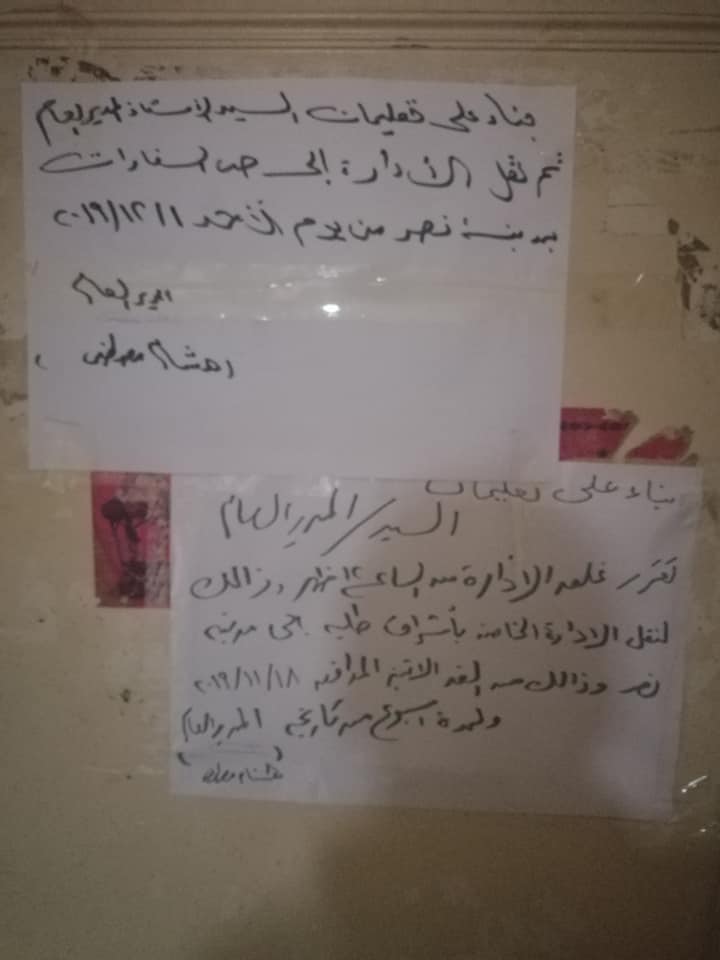 بناء على تعليمات السيد الاستاذ المدير العام
تم نقل الأدارة إلى حى السفارات
بمدينة نصر من يوم الأحد ٢٠١٩/١٢/١
المدير العام
هشام مصطفى
بناء على تعليمات
السيد/ المدير العام
تقرر غلق الادارة من الساعة ١٢ ظهر وذالك
لنقل الادارة الخاصة بأشراف طلبه الى مدينة
نصر وذالك من الغد الاثنين الموافق ٢٠١٩/١١/١٨
ولمدة اسبوع من تاريخه المدير العام